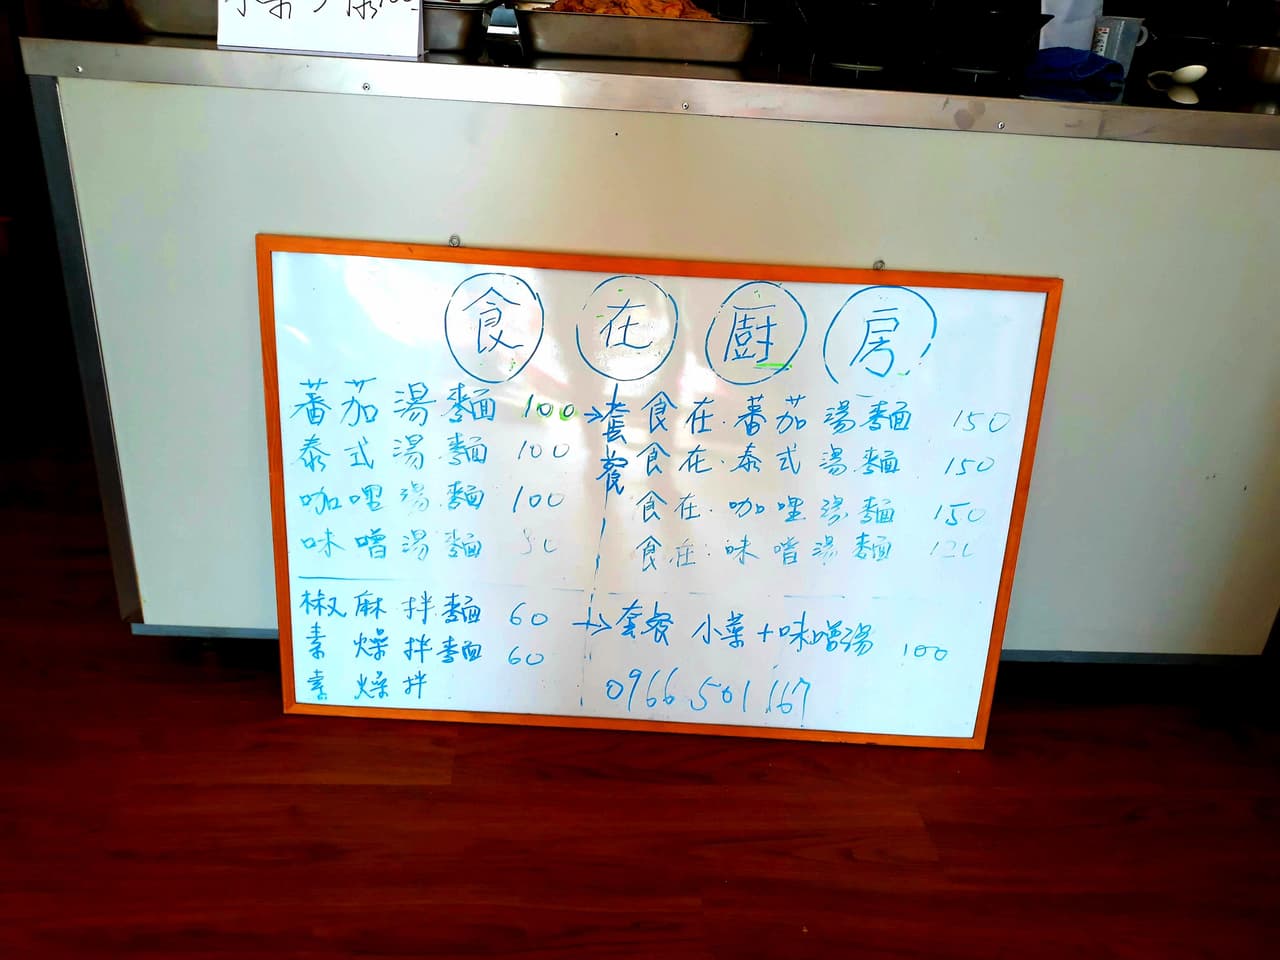 小菜
100
食在廚房
蕃茄湯麵 100 → 套餐 食在.蕃茄湯麵 150
泰式湯麵 100 食在.泰式湯麵 150
咖哩湯麵 100 食在.咖哩湯麵 150
味噌湯麵 食在.味噌湯麵
椒麻拌麵 60 → 套餐 小菜+味噌湯 100
素燥拌麵 60
素燥拌 0966 501 167